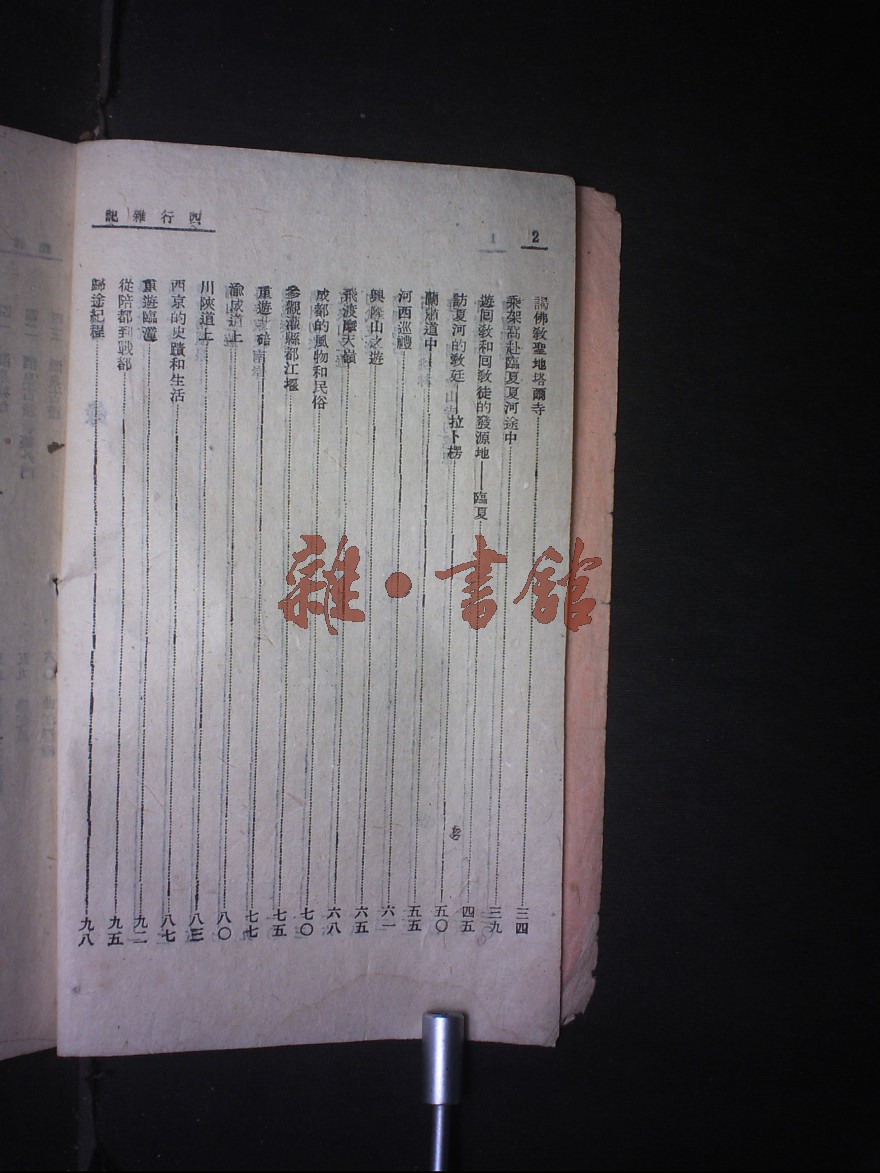 2
西行雜記
謁佛教聖地塔爾寺 三四
乘架窩赴臨夏夏河途中 三九
遊回教和回教徒的發源地——臨夏 四五
訪夏河的教廷 拉卜楞 五〇
蘭 道中 五五
河西巡禮 六一
興隆山之遊 六五
飛渡摩天嶺 六八
成都的風物和民俗 七〇
參觀灌縣都江堰 七五
重遊北碚 七七
渝成道上 八〇
川陝道上 八三
西京的史蹟和生活 八七
重遊臨潼 九二
從陪都到戰都 九五
歸途紀程 九八
雜·書館